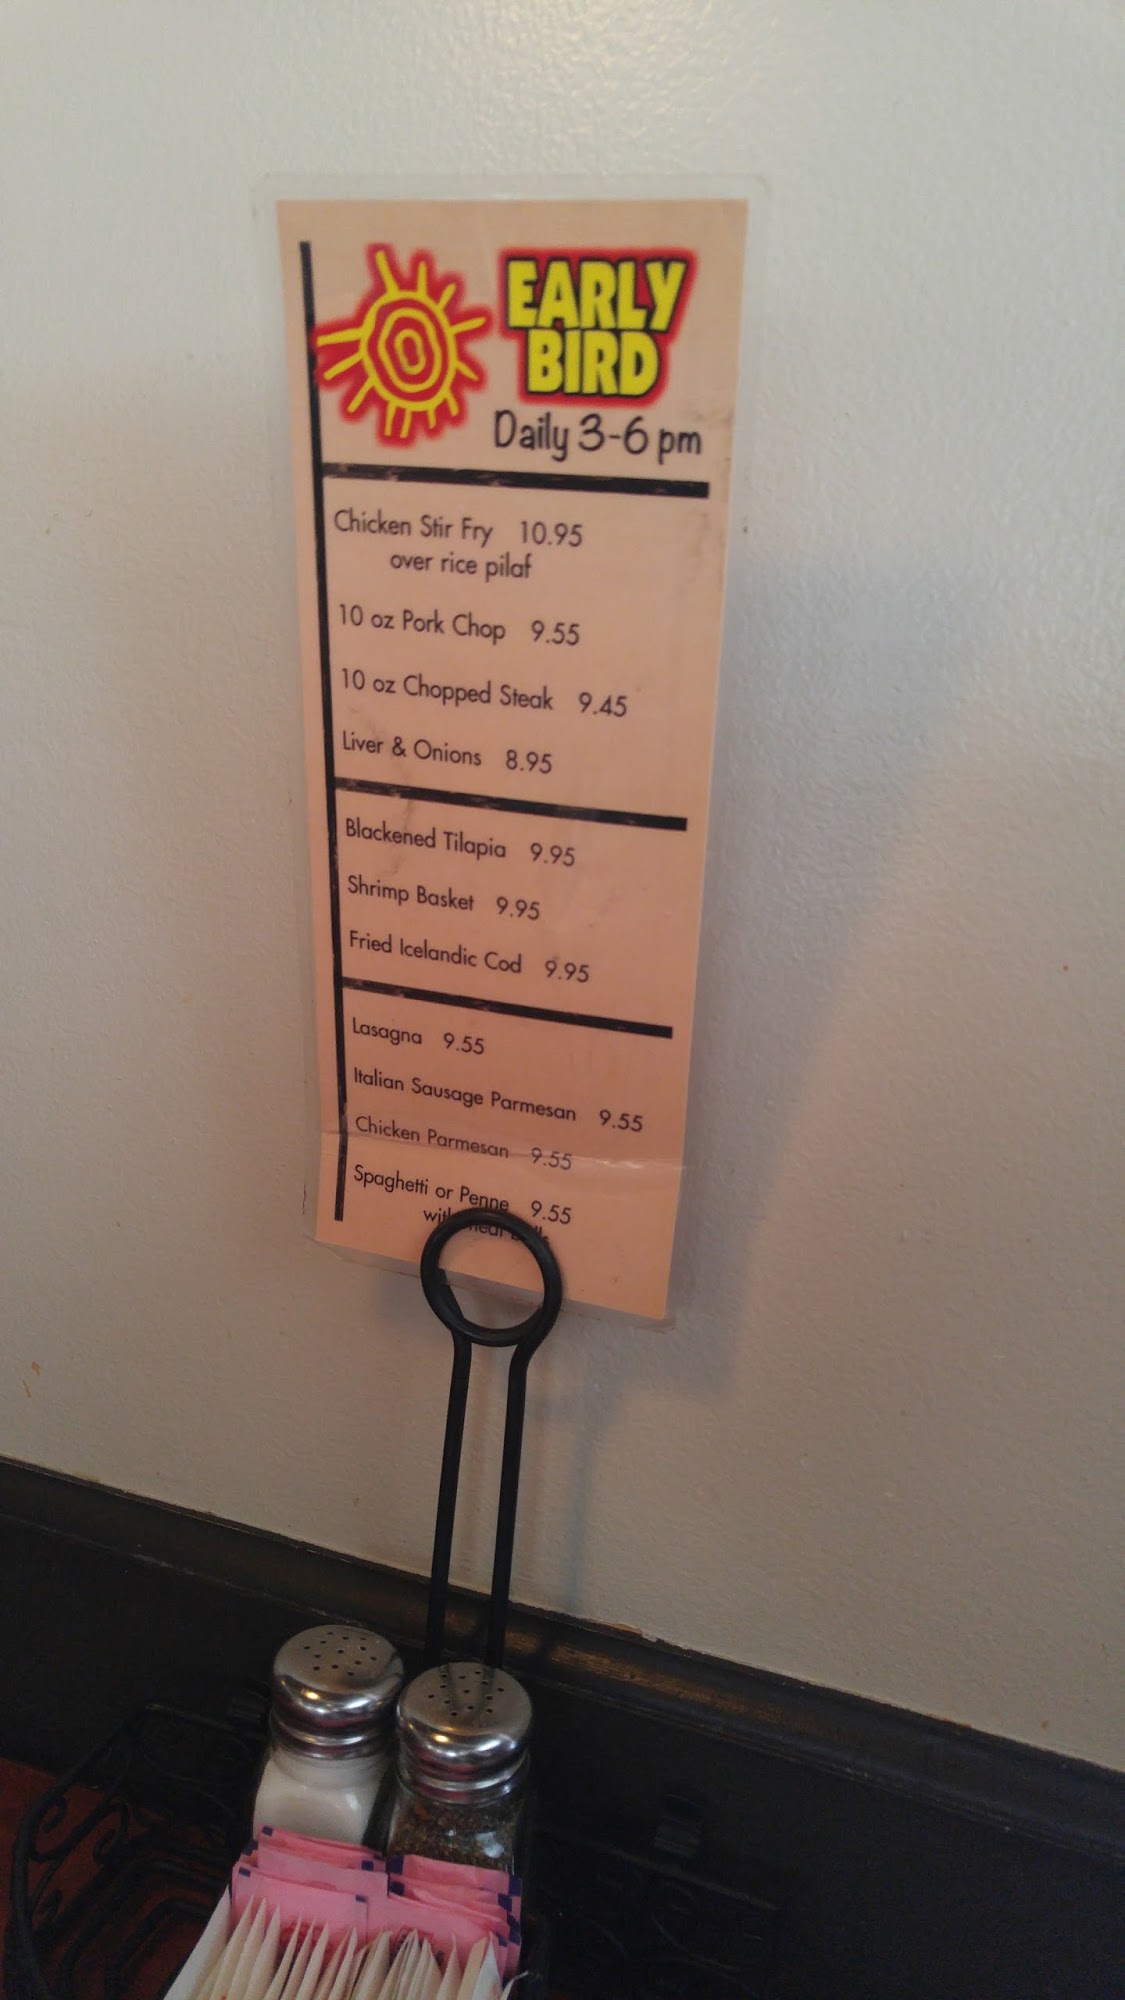 EARLY
BIRD
Daily 3-6 pm
Chicken Stir Fry 10.95
over rice pilaf
10 oz Pork Chop 9.55
10 oz Chopped Steak 9.45
Liver & Onions 8.95
Blackened Tilapia 9.95
Shrimp Basket 9.95
Fried Icelandic Cod 9.95
Lasagna 9.55
Italian Sausage Parmesan 9.55
Chicken Parmesan 9.55
Spaghetti or Penne 9.55
with meat balls